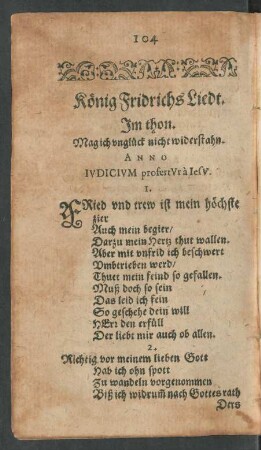 104
König Fridrichs Liedt.
Im thon.
Mag ich vnglück nicht widerstahn.
ANNO
IVDICIVM profertVr à IesV.
1.
FRied vnd trew ist mein höchste
zier
Auch mein begier/
Darzu mein Hertz thut wallen.
Aber mit vnfrid ich beschwert
Vmbtrieben werd/
Thuet mein feind so gefallen.
Muß doch so sein
Das leid ich fein
So geschehe dein will
HErr den erfüll
Der liebt mir auch ob allen.
2.
Richtig vor meinem lieben Gott
Hab ich ohn spott
Zu wandeln vorgenommen
Biß ich widrum̃ nach Gottes rath
Ders